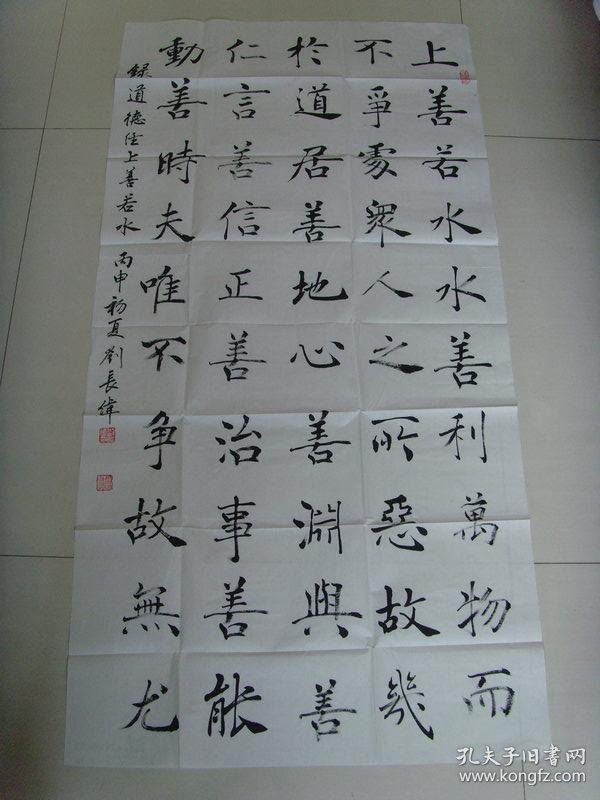 上善若水水善利萬物而
不爭處衆人之所惡故幾
於道居善地心善淵與善
仁言善信正善治事善能
動善時夫唯不争故無尤
録道德経上善若水 丙申初夏劉長偉
孔夫子旧书网
www.kongfz.com